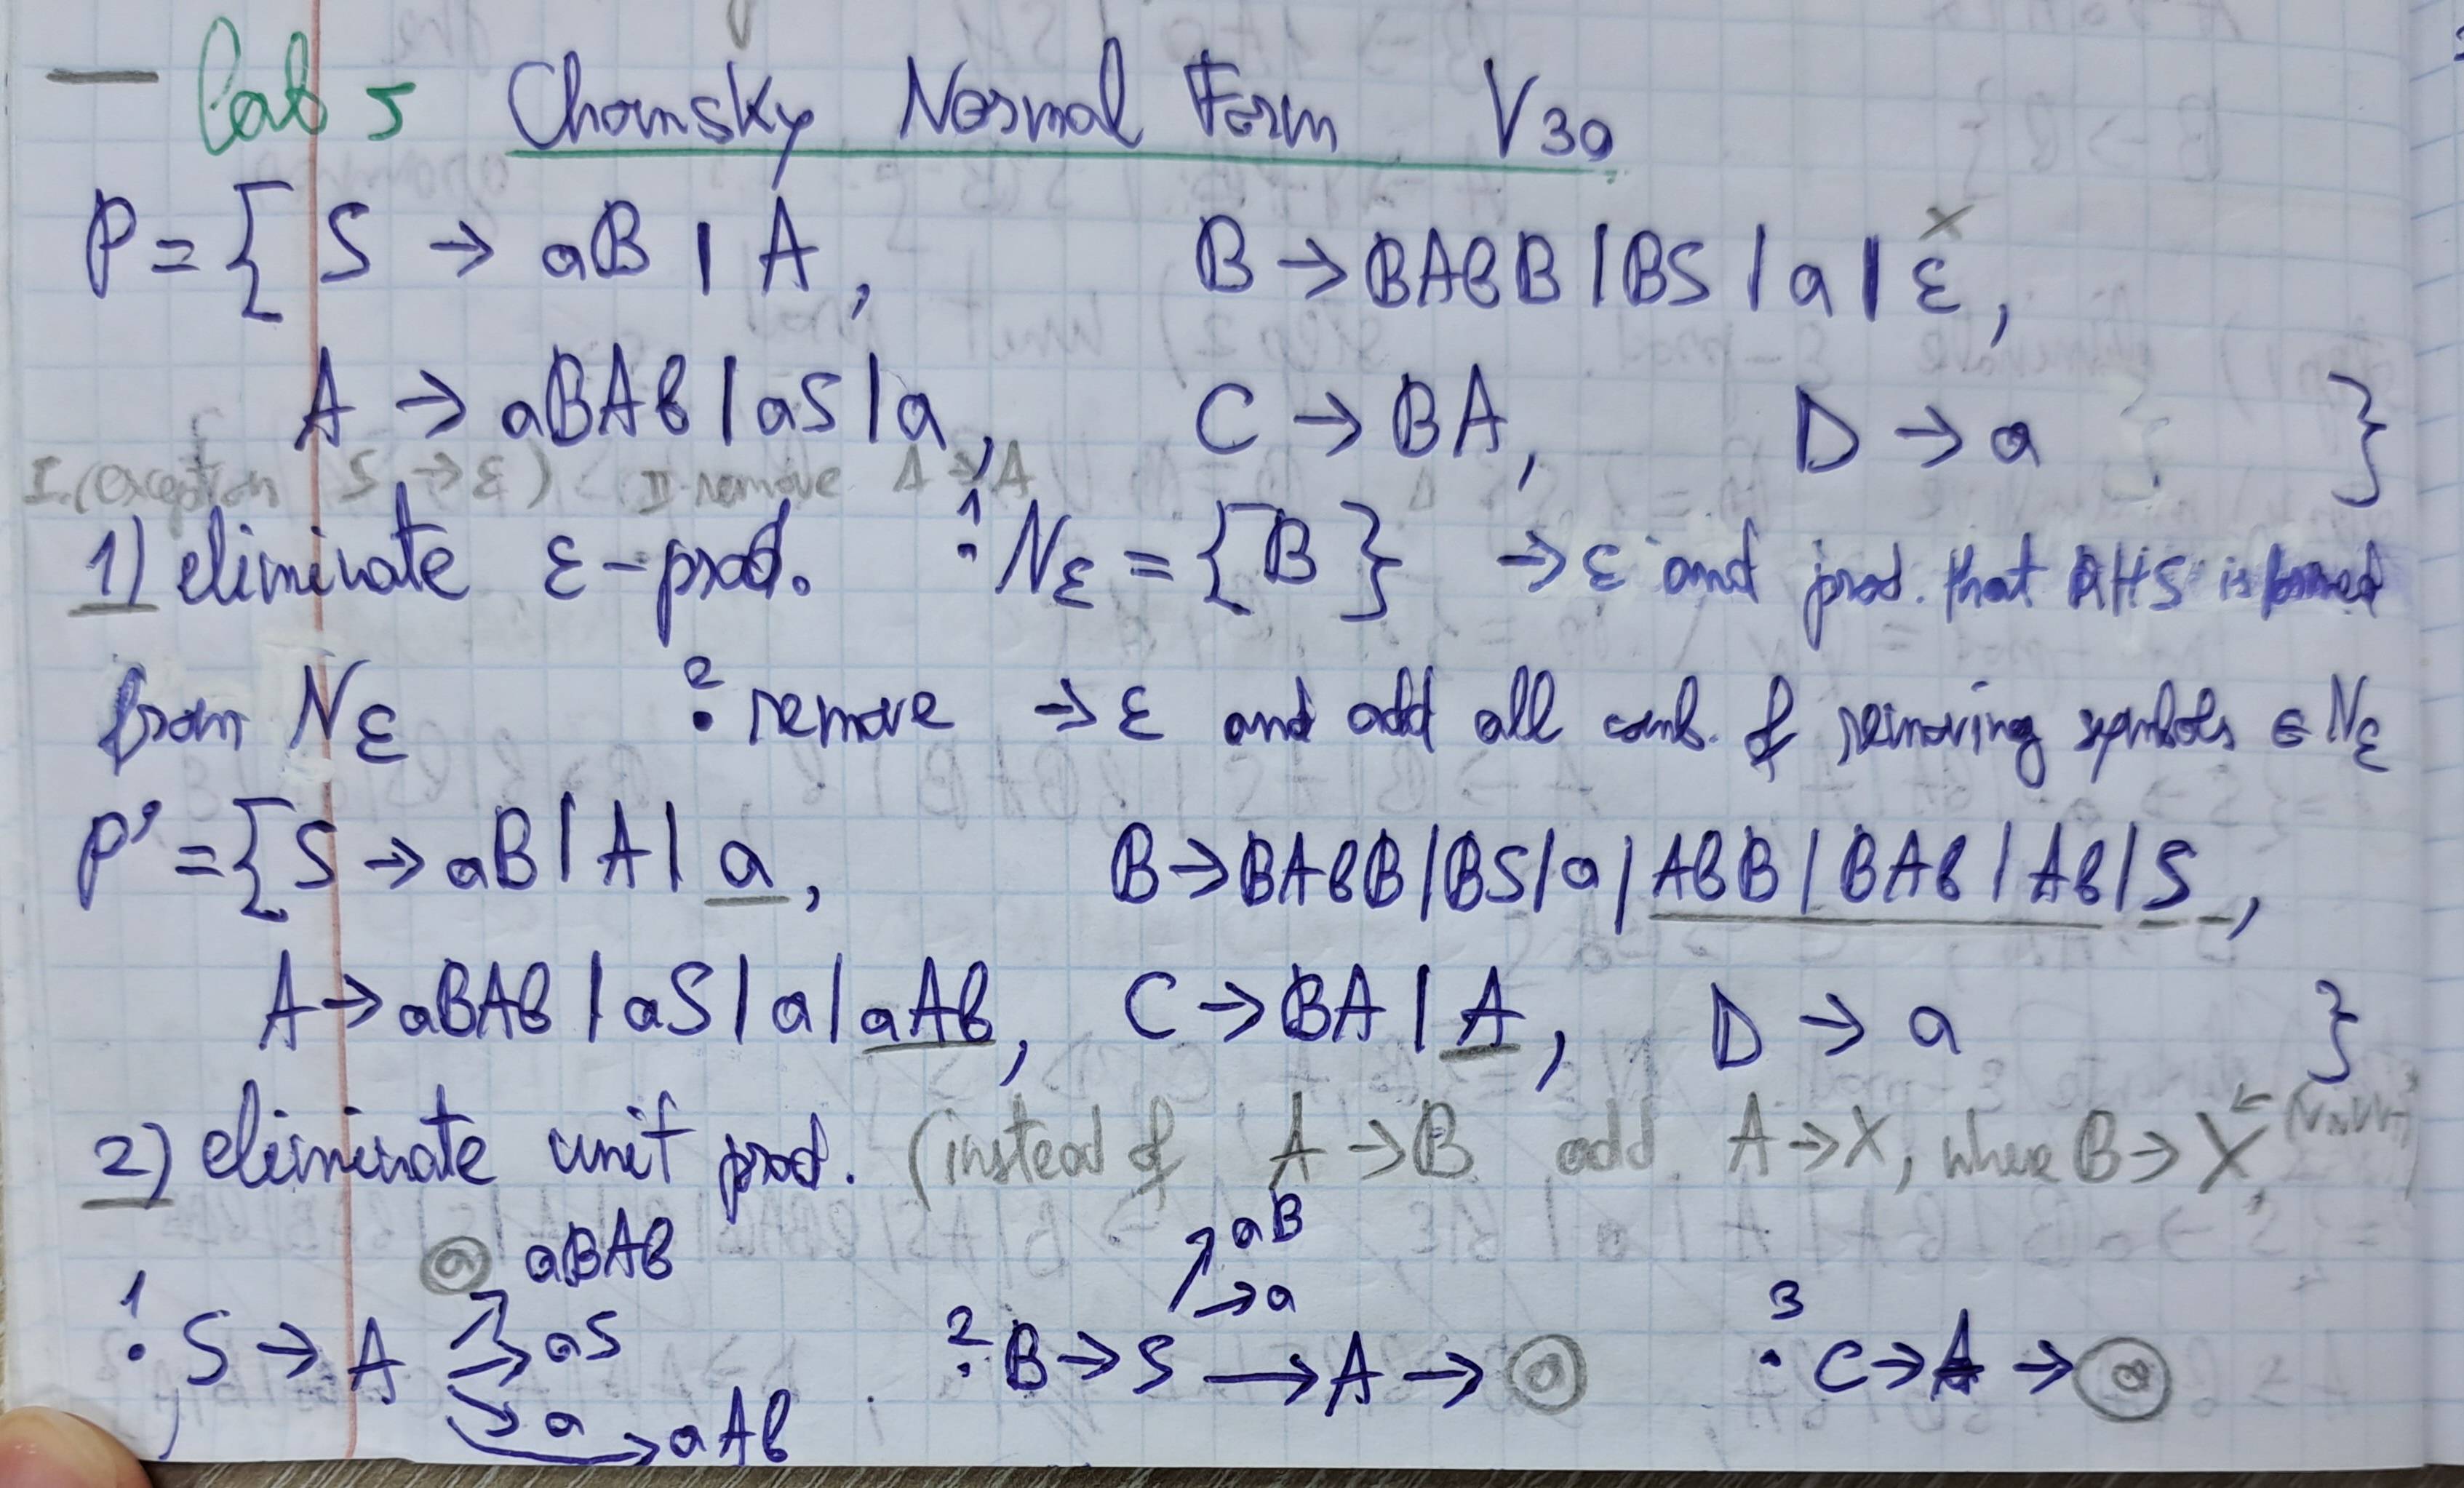 — Lab 5 Chomsky Normal Form V30
P = { S → aB | A, B → BAbB | BS | a | ε, x
A → aBAb | aS | a, C → BA, D → a }
I. (exception S → ε) II remove A → A
1) eliminate ε-prod. 1. Nε = {B} → ε and prod. that RHS is formed
from Nε 2. remove → ε and add all comb. of removing symbols ∈ Nε
P' = { S → aB | A | a, B → BAbB | BS | a | AbB | BAb | Ab | S,
A → aBAb | aS | a | aAb, C → BA | A, D → a }
2) eliminate unit prod. (instead of A → B add A → X, where B → X ←
a aBAb aB
→ a
1. S → A → aS 2. B → S → A → a 3. C → A → a
→ a → aAb